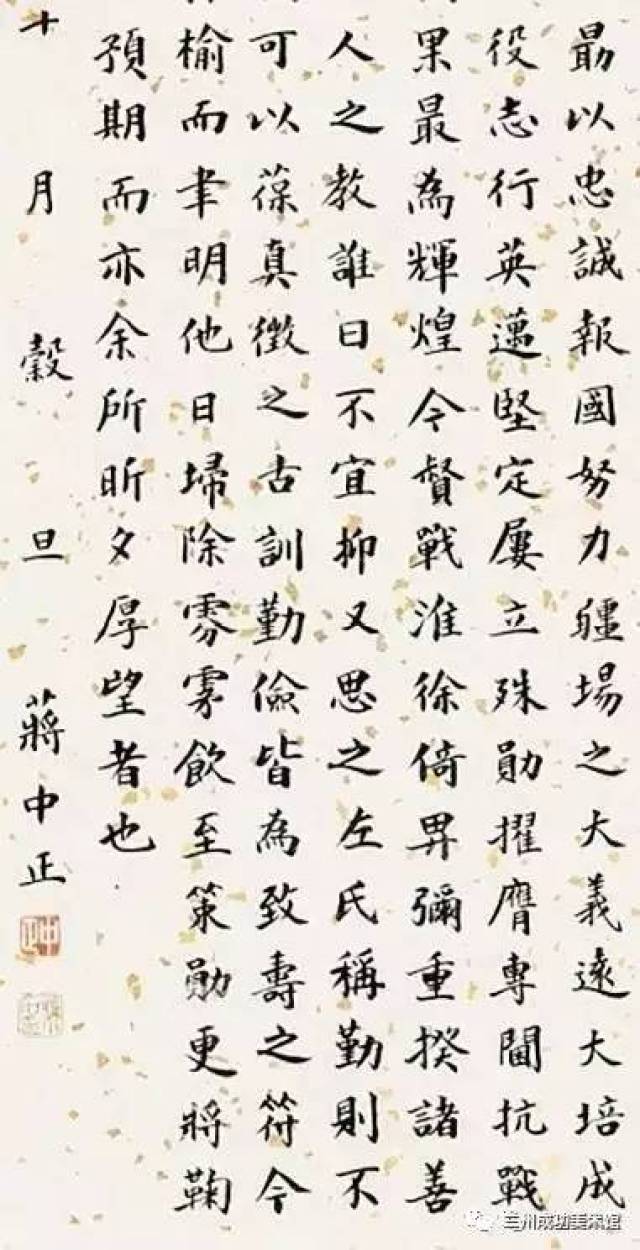 勗以忠誠報國努力疆場之大義遠大培成
役志行英邁堅定屢立殊勛擢膺專閫抗戰
果最為輝煌今督戰淮徐倚畀彌重揆諸善
人之教誰曰不宜抑又思之左氏稱勤則不
可以葆真徵之古訓勤儉皆為致壽之符今
榆而聿明他日埽除雰雺飲至策勛更將鞠
預期而亦余所昕夕厚望者也
十月穀旦 蔣中正
中正
兰州成功美术馆